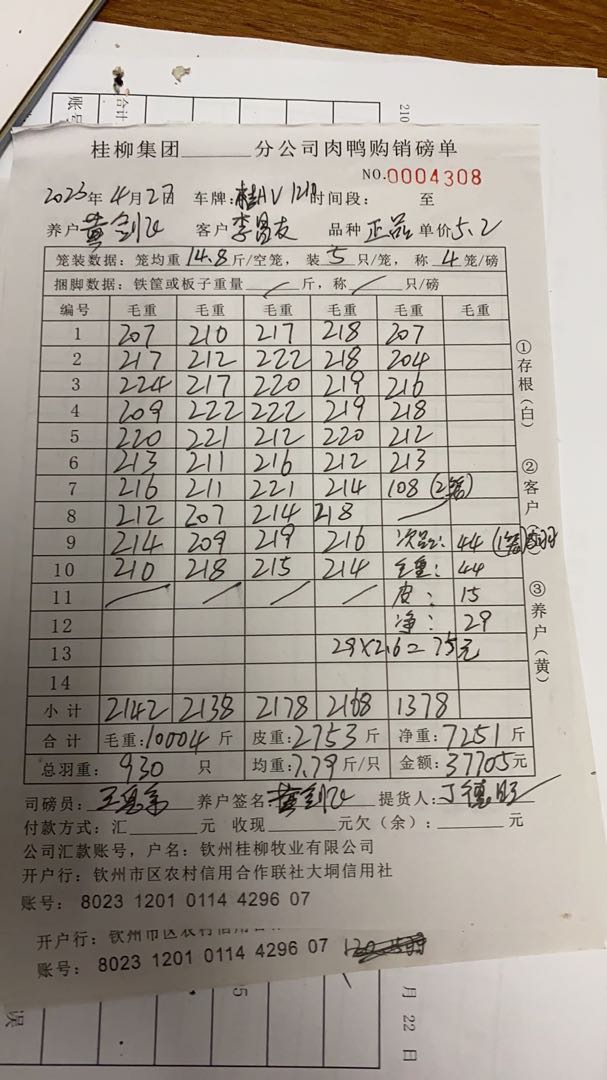 账号
合计
210
桂柳集团______分公司肉鸭购销磅单
NO.0004308
2023年4月2日 车牌：桂AV 1210 时间段： 至
养户 黄剑 客户 李昌友 品种 正品 单价 5.2
笼装数据：笼均重 14.8 斤/空笼，装 5 只/笼，称 4 笼/磅
捆脚数据：铁筐或板子重量 / 斤，称 / 只/磅
编号 毛重 毛重 毛重 毛重 毛重 毛重
1 207 210 217 218 207
2 217 212 222 218 204
3 224 217 220 219 216
4 209 222 222 219 218
5 220 221 212 220 212
6 213 211 216 212 213
7 216 211 221 214 108 (2笼)
8 212 207 214 218 /
9 214 209 219 216 次品： 44 (1笼)
10 210 218 215 214 毛重： 44
11 / / / / 皮： 15
12 净： 29
13 29×2.6=75元
14
小计 2142 2138 2178 2168 1378
合计 毛重：10004 斤 皮重：2753 斤 净重：7251 斤
总羽重： 930 只 均重：7.79 斤/只 金额：37705 元
①存根（白）
②客户
③养户（黄）
司磅员： 养户签名 黄剑 提货人： 丁德
付款方式：汇______元 收现______元欠（余）：______元
公司汇款账号，户名：钦州桂柳牧业有限公司
开户行：钦州市区农村信用合作联社大垌信用社
账号：8023 1201 0114 4296 07
开户行：钦州市区农村信用合
账号：8023 1201 0114 4296 07
月 22 日
误